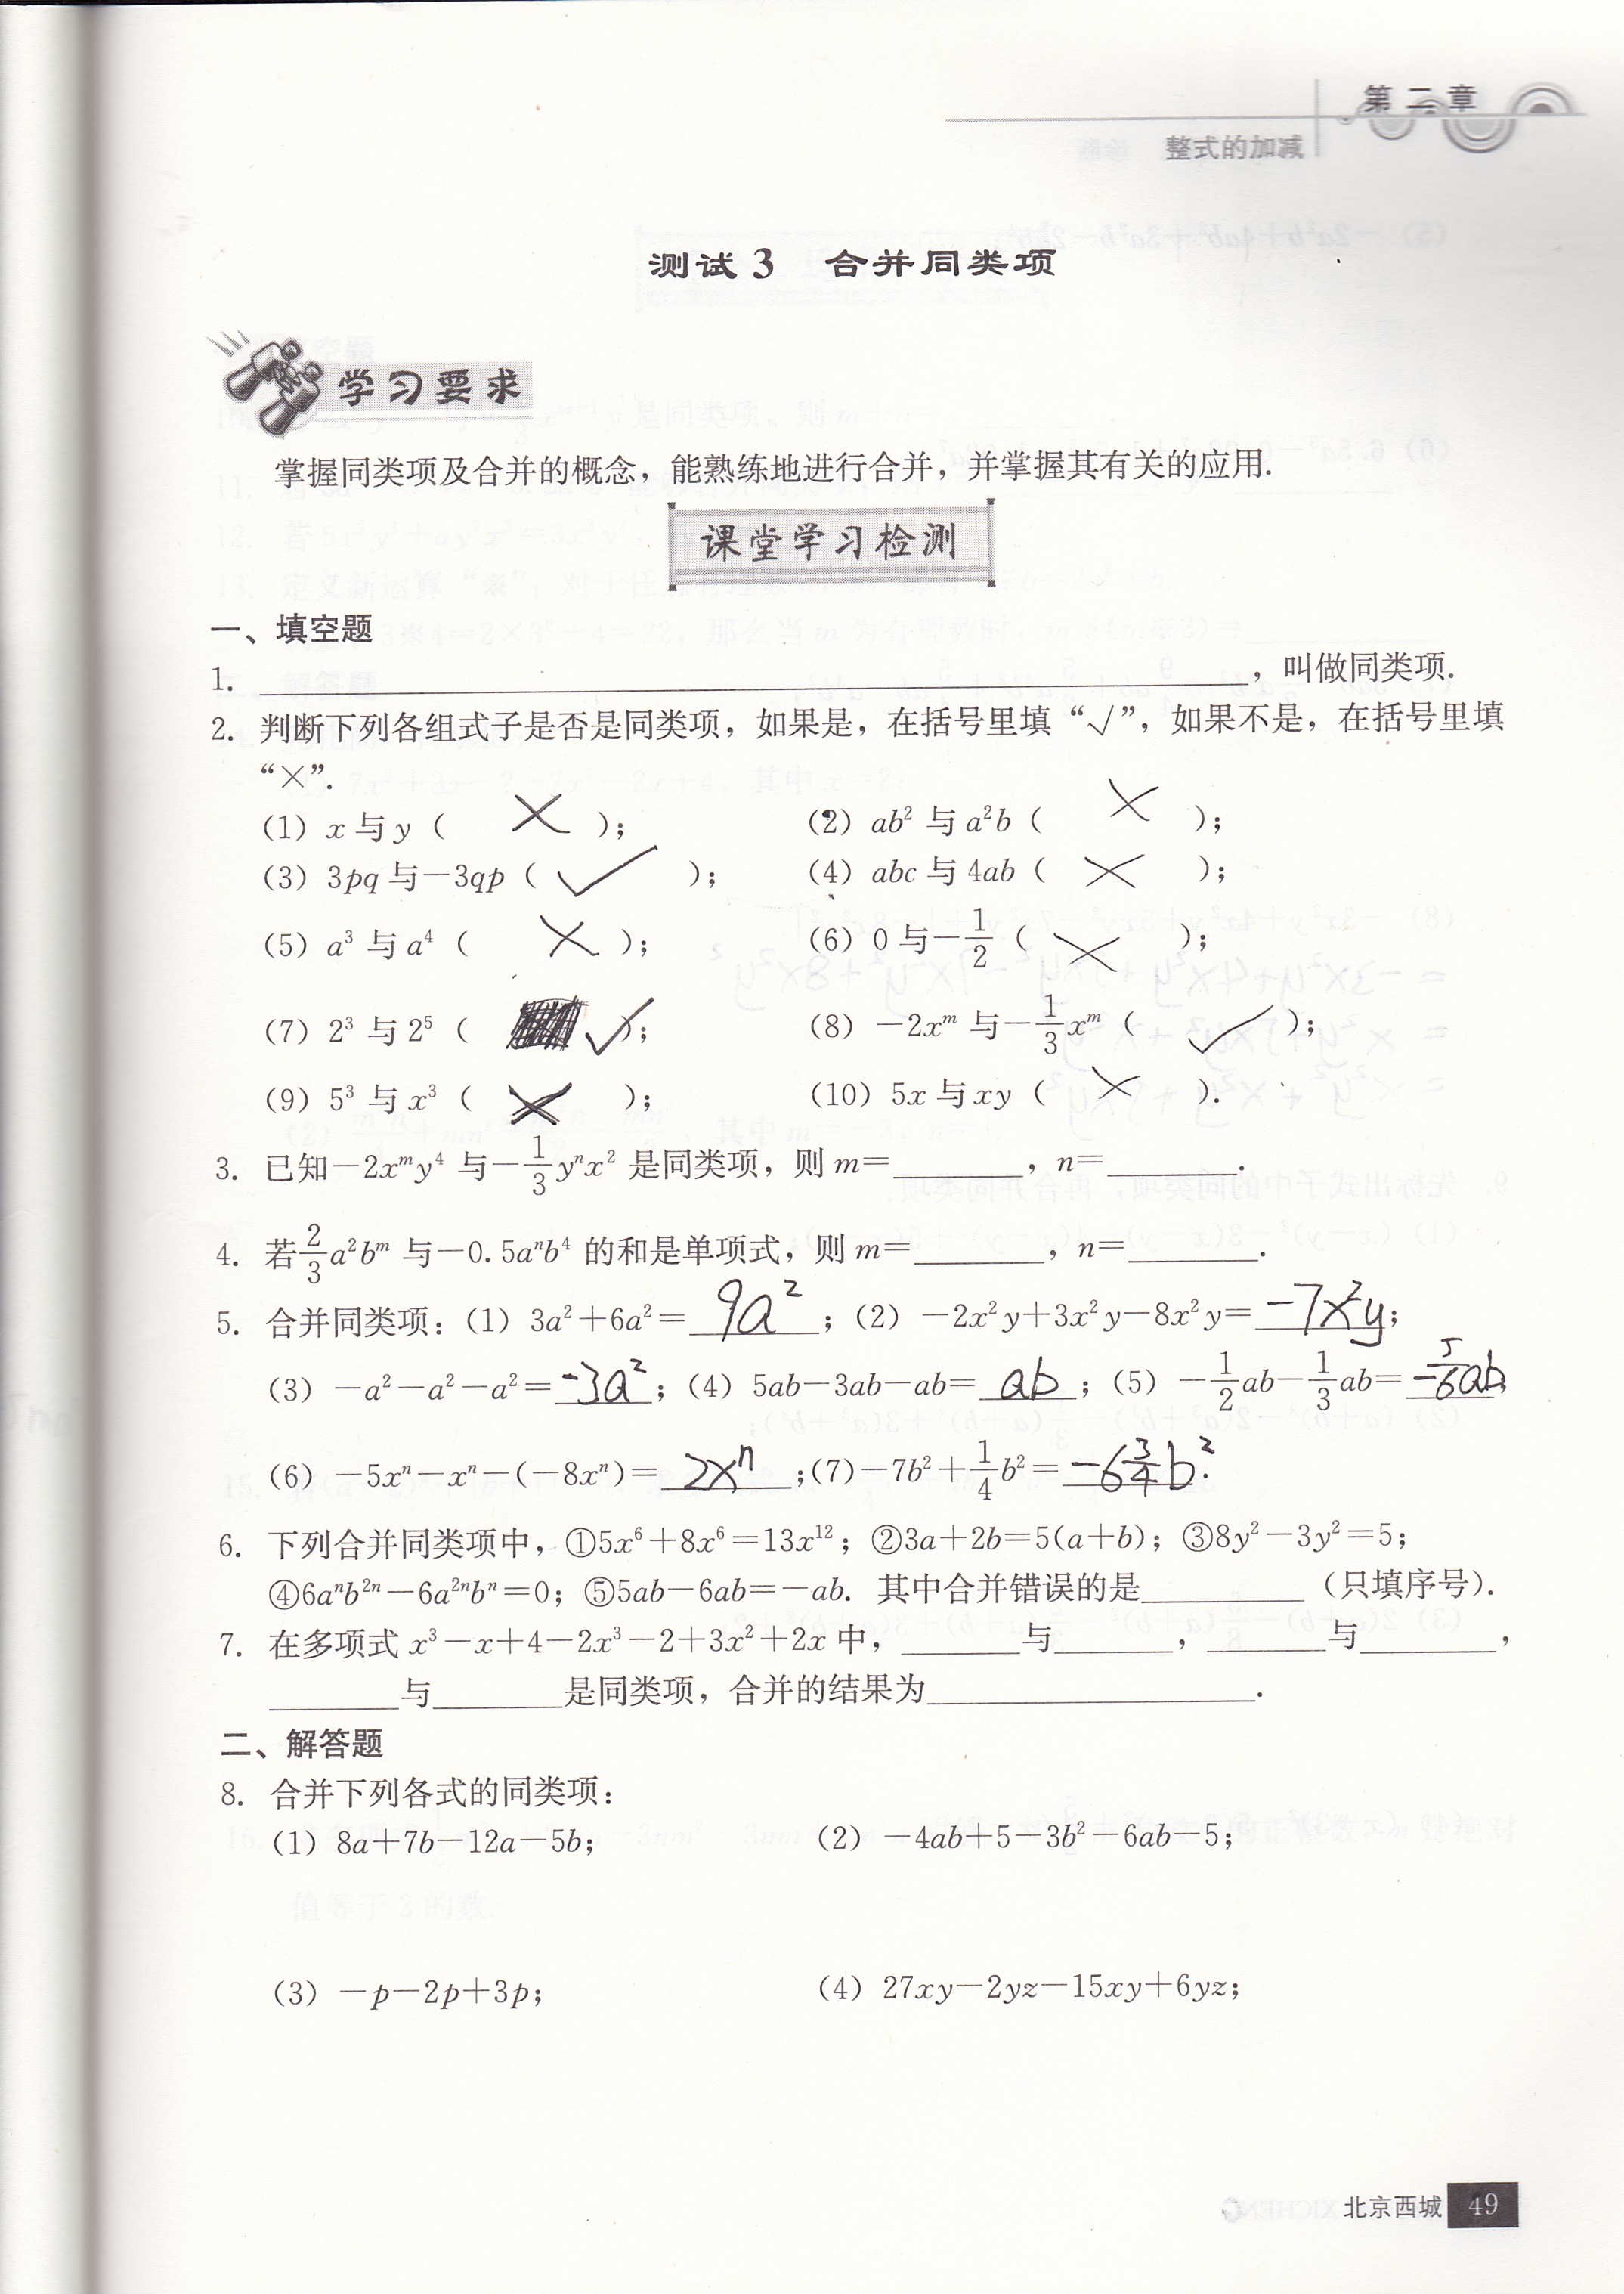 第二章
整式的加减
测试3 合并同类项
学习要求
掌握同类项及合并的概念，能熟练地进行合并，并掌握其有关的应用.
课堂学习检测
一、填空题
1. ____________，叫做同类项.
2. 判断下列各组式子是否是同类项，如果是，在括号里填“√”，如果不是，在括号里填
“×”.
(1) x与y（ × ）； (2) ab²与a²b（ × ）；
(3) 3pq与－3qp（ √ ）； (4) abc与4ab（ × ）；
(5) a³与a⁴（ × ）； (6) 0与－1/2（ × ）；
(7) 2³与2⁵（ √ ）； (8) －2xᵐ与－1/3xᵐ（ √ ）；
(9) 5³与x³（ × ）； (10) 5x与xy（ × ）.
3. 已知－2xᵐy⁴与－1/3yⁿx²是同类项，则m＝______，n＝______.
4. 若2/3a²bᵐ与－0.5aⁿb⁴的和是单项式，则m＝______，n＝______.
5. 合并同类项：(1) 3a²＋6a²＝9a²；(2) －2x²y＋3x²y－8x²y＝－7x²y；
(3) －a²－a²－a²＝－3a²；(4) 5ab－3ab－ab＝ab；(5) －1/2ab－1/3ab＝－5/6ab；
(6) －5xⁿ－xⁿ－(－8xⁿ)＝2xⁿ；(7)－7b²＋1/4b²＝－6 3/4b².
6. 下列合并同类项中，①5x⁶＋8x⁶＝13x¹²；②3a＋2b＝5(a＋b)；③8y²－3y²＝5；
④6aⁿb²ⁿ－6a²ⁿbⁿ＝0；⑤5ab－6ab＝－ab. 其中合并错误的是______（只填序号）.
7. 在多项式x³－x＋4－2x³－2＋3x²＋2x中，______与______，______与______，
______与______是同类项，合并的结果为____________.
二、解答题
8. 合并下列各式的同类项：
(1) 8a＋7b－12a－5b； (2) －4ab＋5－3b²－6ab－5；
(3) －p－2p＋3p； (4) 27xy－2yz－15xy＋6yz；
北京西城 49